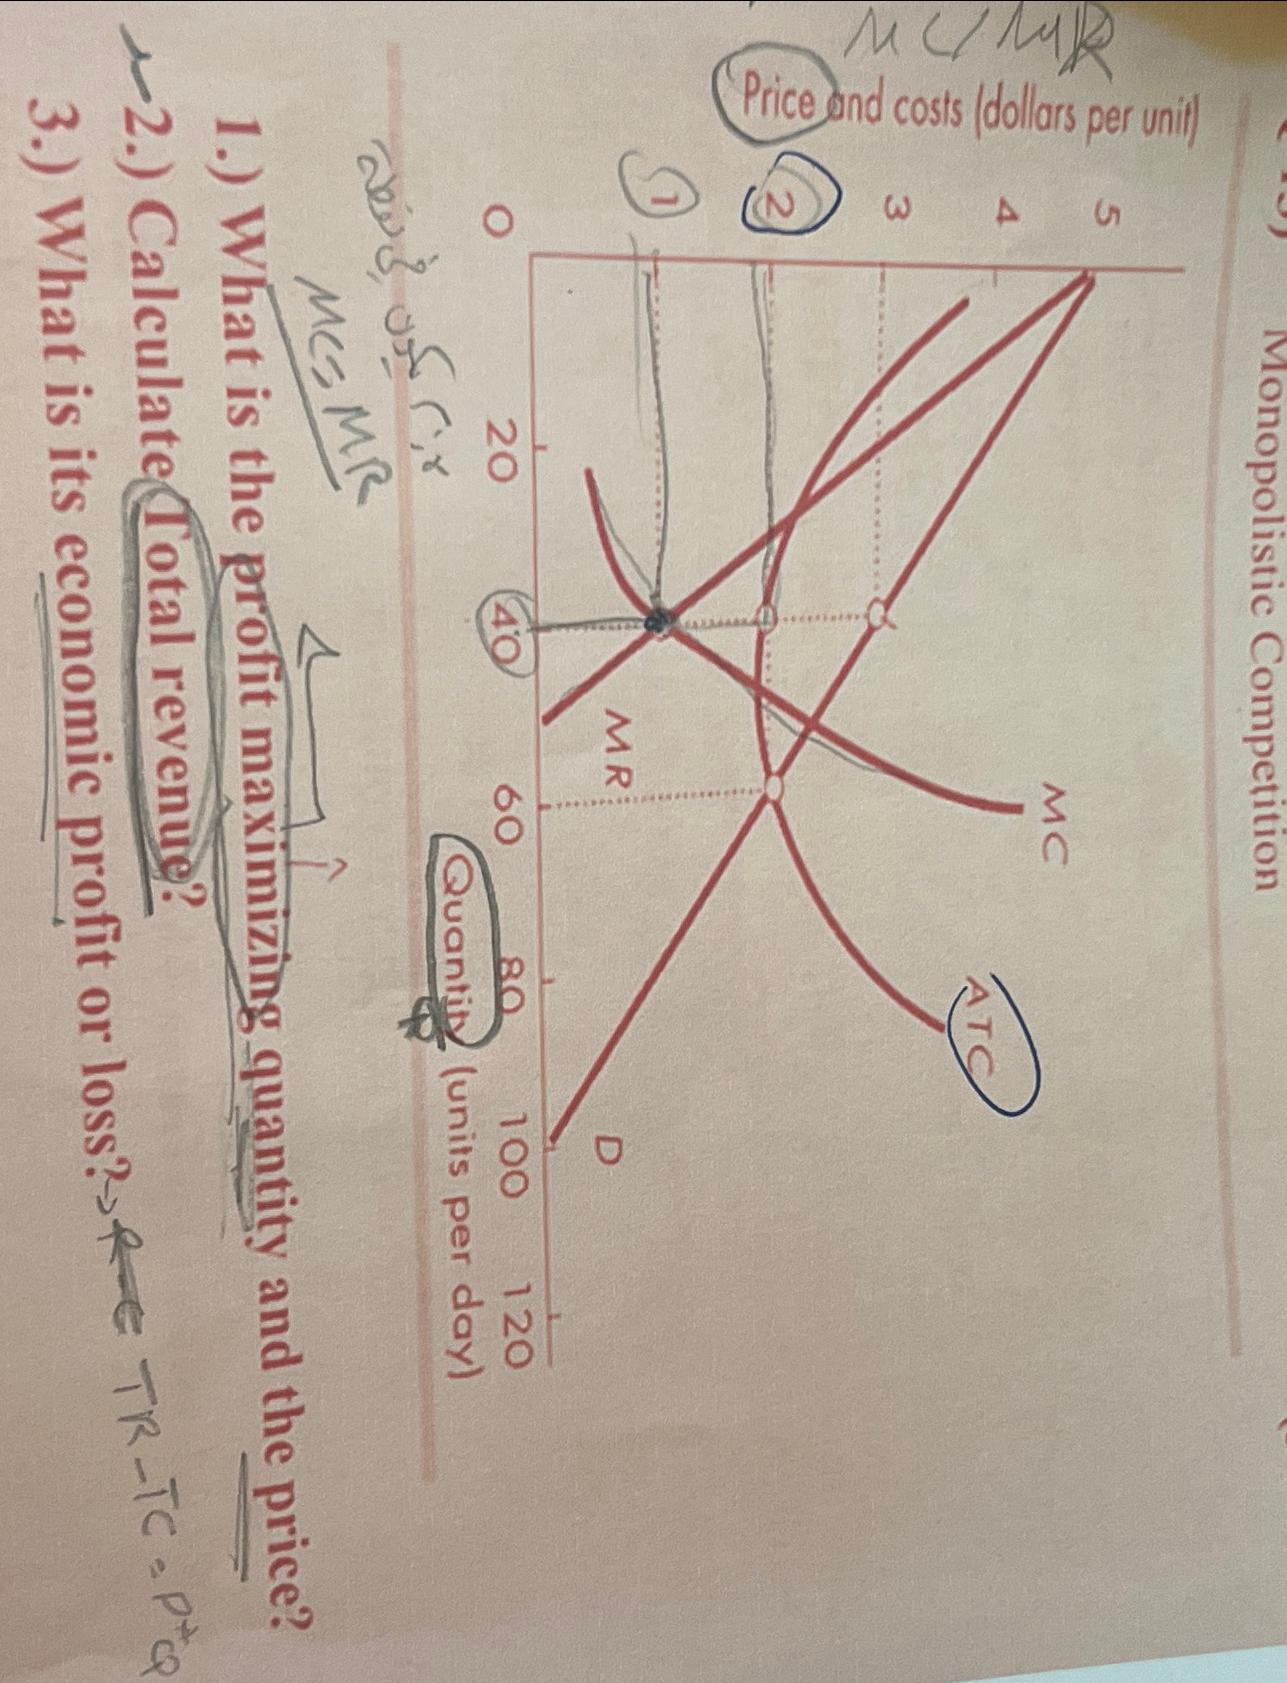 Monopolistic Competition
MC/MR
Price and costs (dollars per unit)
5
4
3
2
1
0
20
40
60
80
100
120
MC
ATC
MR
D
Quantity (units per day)
MC=MR
1.) What is the profit maximizing quantity and the price?
2.) Calculate Total revenue?
3.) What is its economic profit or loss? → TR - TC = P*Q